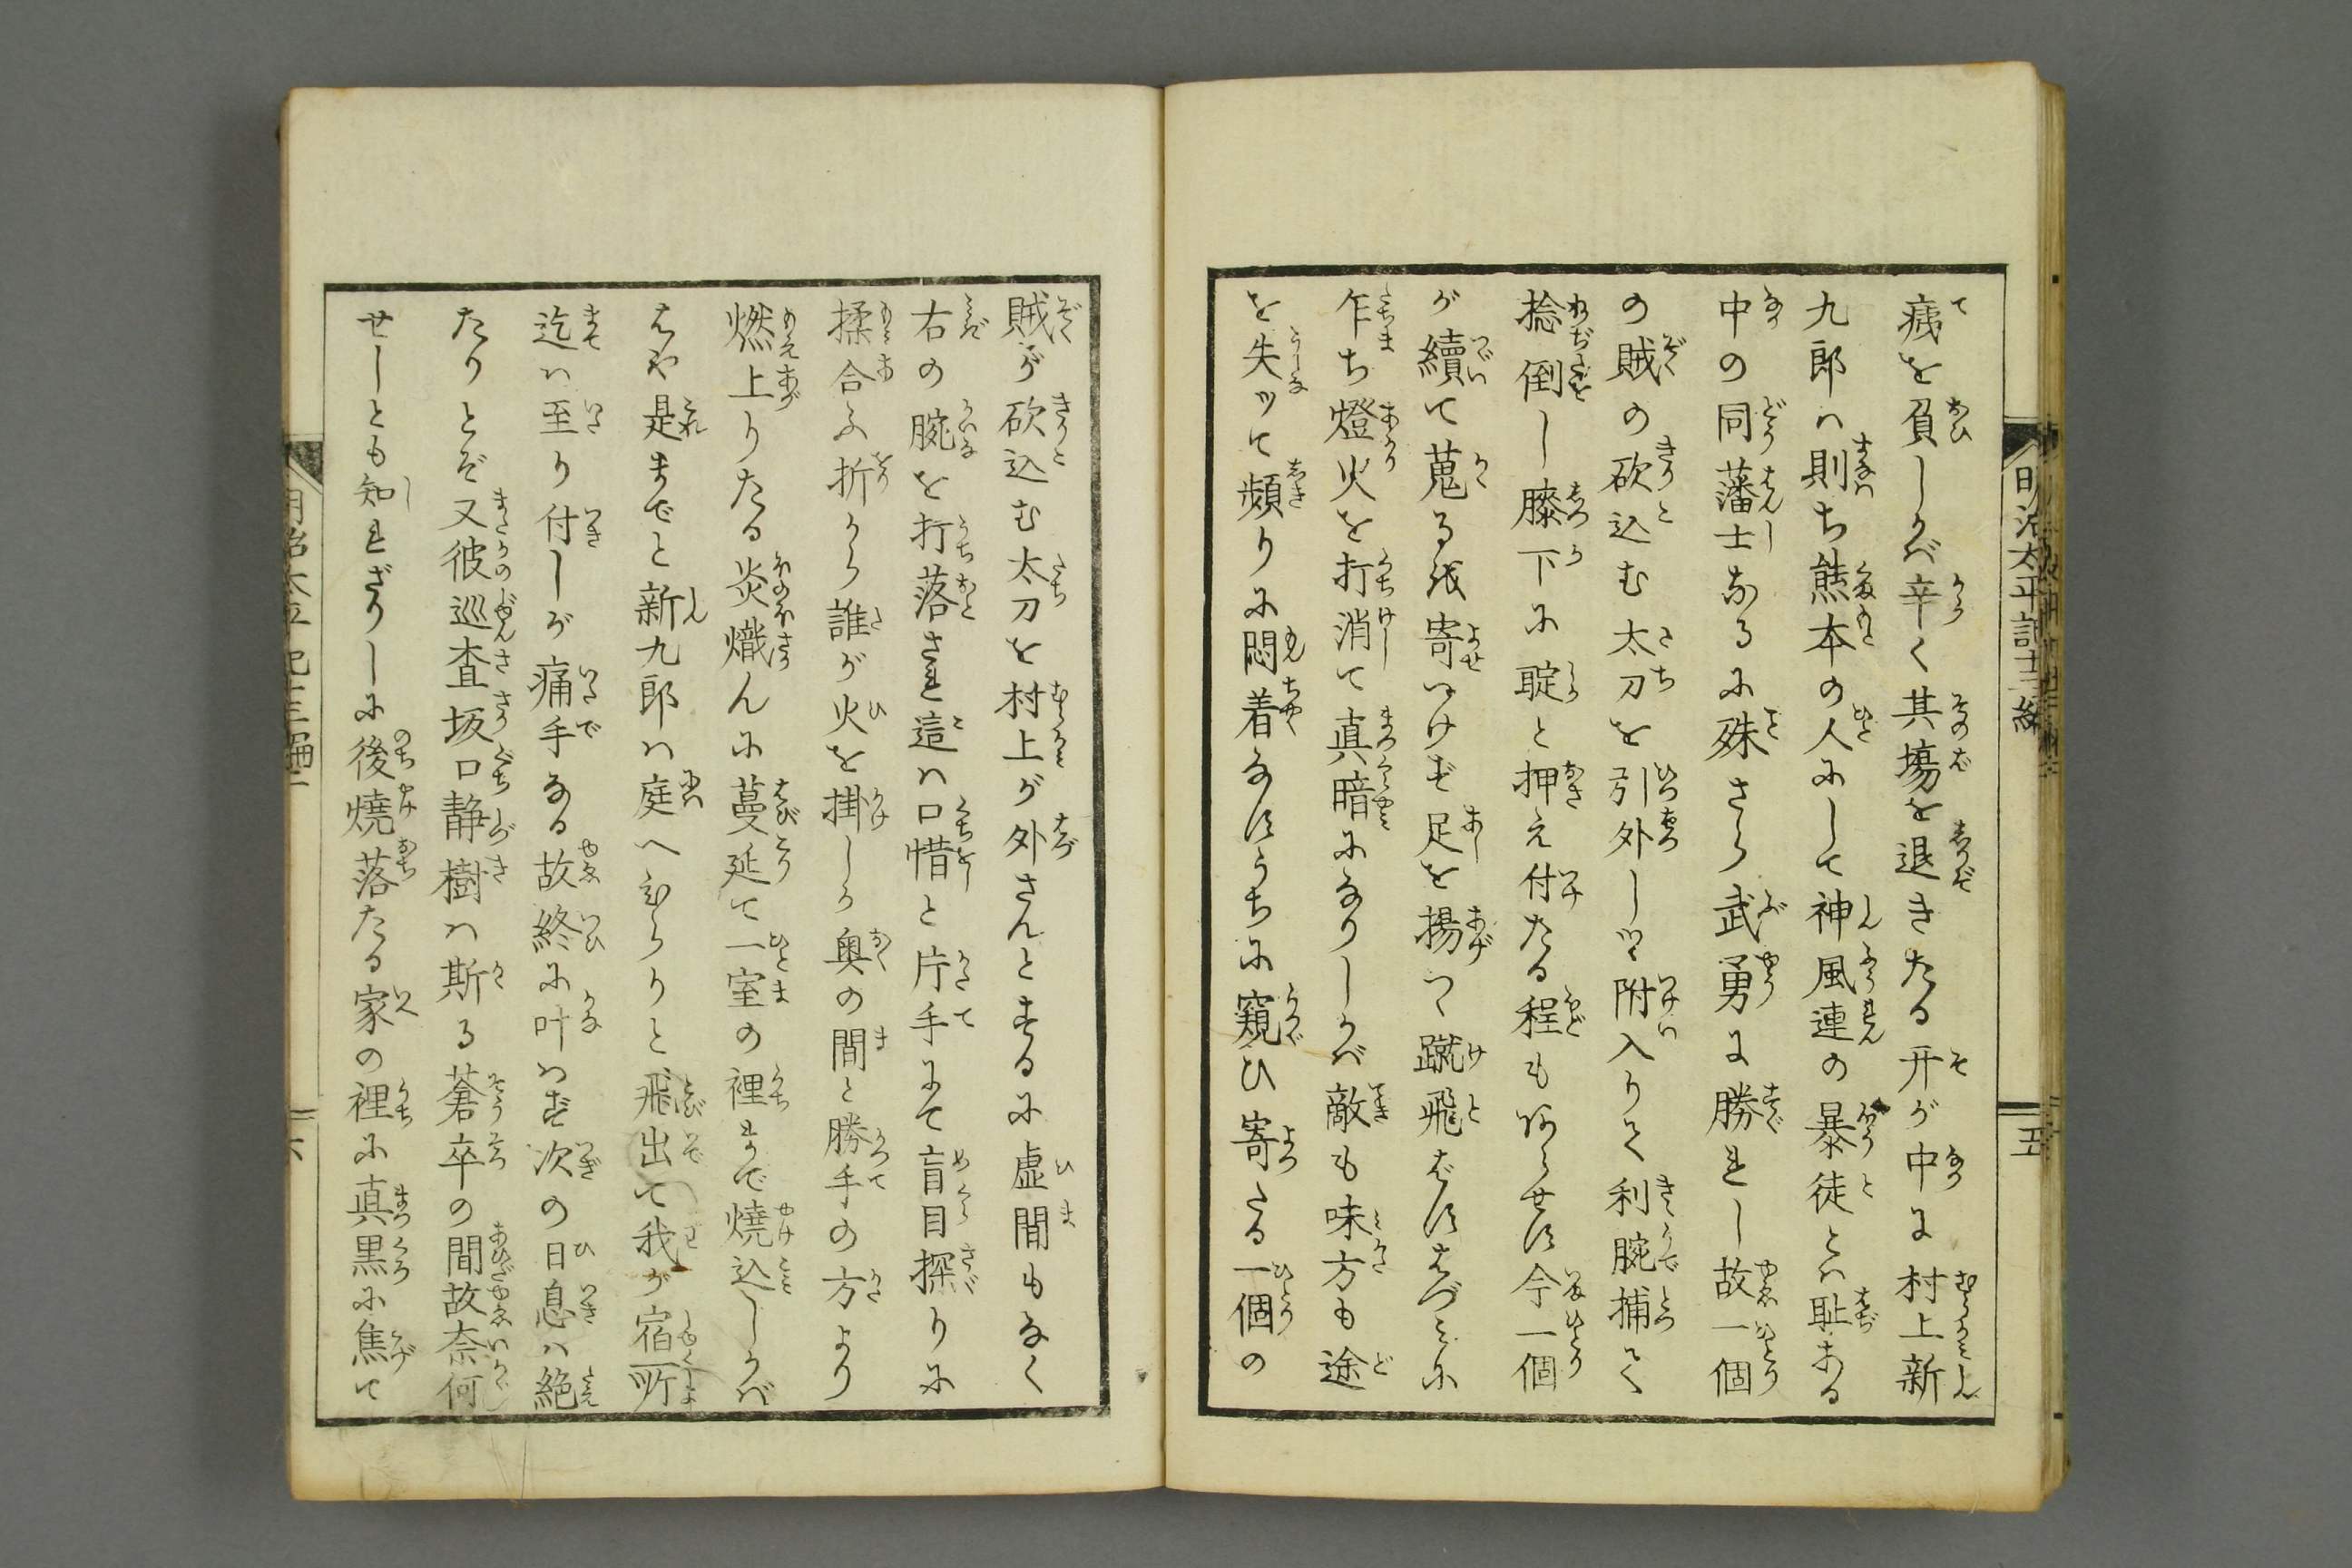 明治太平記十三編
五
痍を負しかバ辛く其塲を退きたる开が中に村上新
九郎ハ則ち熊本の人にして神風連の暴徒とハ耻ある
中の同藩士なるに殊さら武勇に勝れし故一個
の賊の砍込む太刀を引外しツヽ附入りて利腕捕て
捻倒し膝下に聢と押え付たる程もあらせず今一個
が續て蒐るを寄つけず足を揚つヽ蹴飛ばすはづミに
乍ち燈火を打消て真暗になりしかバ敵も味方も途
を失ツて頻りに悶着なすうちに窺ひ寄たる一個の
賊が砍込む太刀を村上が外さんとするに虚間もなく
右の腕を打落され這ハ口惜と片手にて盲目探りに
揉合ふ折から誰が火を掛しか奥の間と勝手の方より
燃上りたる炎熾んに蔓延て一室の裡まで燒込しかバ
はや是までと新九郎ハ庭へひらりと飛出て我が宿所
迄ハ至り付しが痛手なる故終に叶ハず次の日息ハ絶
たりとぞ又彼巡査坂口静樹ハ斯る蒼卒の間故奈何
せしとも知れざりしに後燒落たる家の裡に真黒に焦て
明治太平記十三編
六